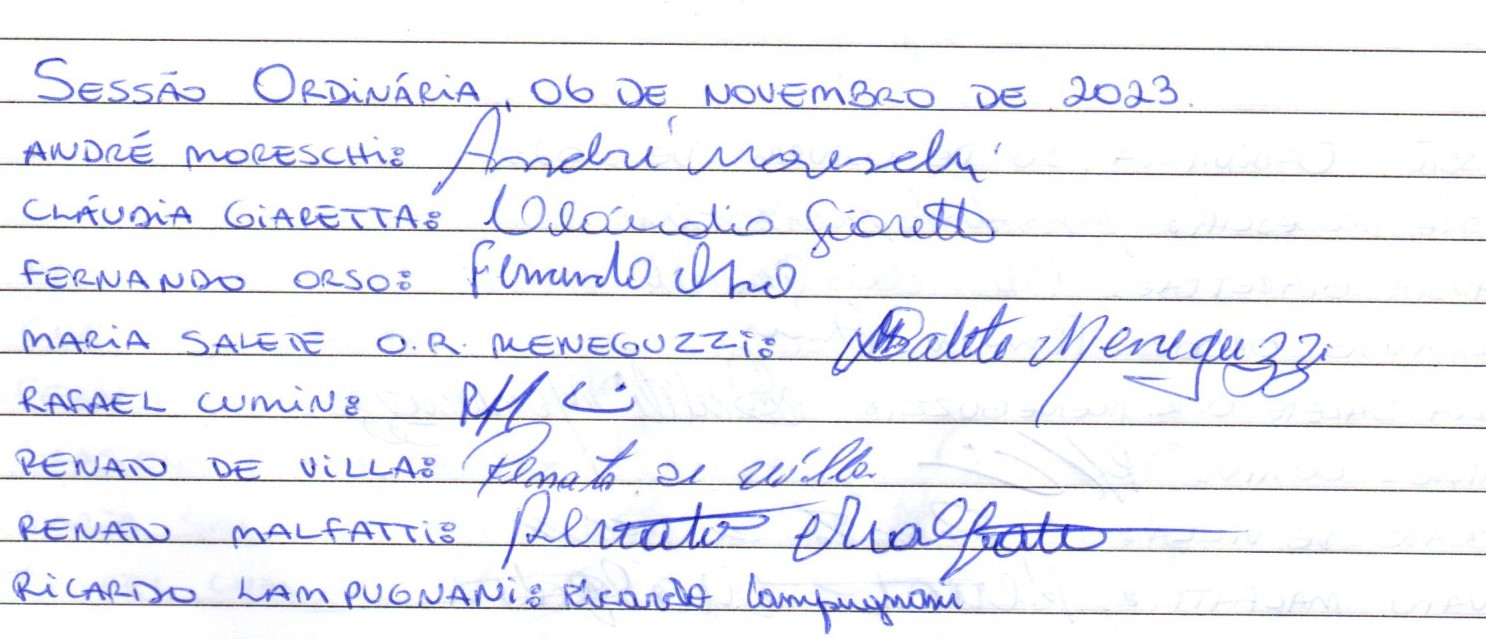 SESSÃO ORDINÁRIA, 06 DE NOVEMBRO DE 2023.
ANDRÉ MORESCHI: André Moreschi
CLÁUDIA GIARETTA: Cláudia Giaretta
FERNANDO ORSO: Fernando Orso
MARIA SALETE O.R. MENEGUZZI: MSalete Meneguzzi
RAFAEL CUMIN:
RENATO DE VILLA: Renato de Villa
RENATO MALFATTI: Renato Malfatti
RICARDO LAMPUGNANI: Ricardo Lampugnani